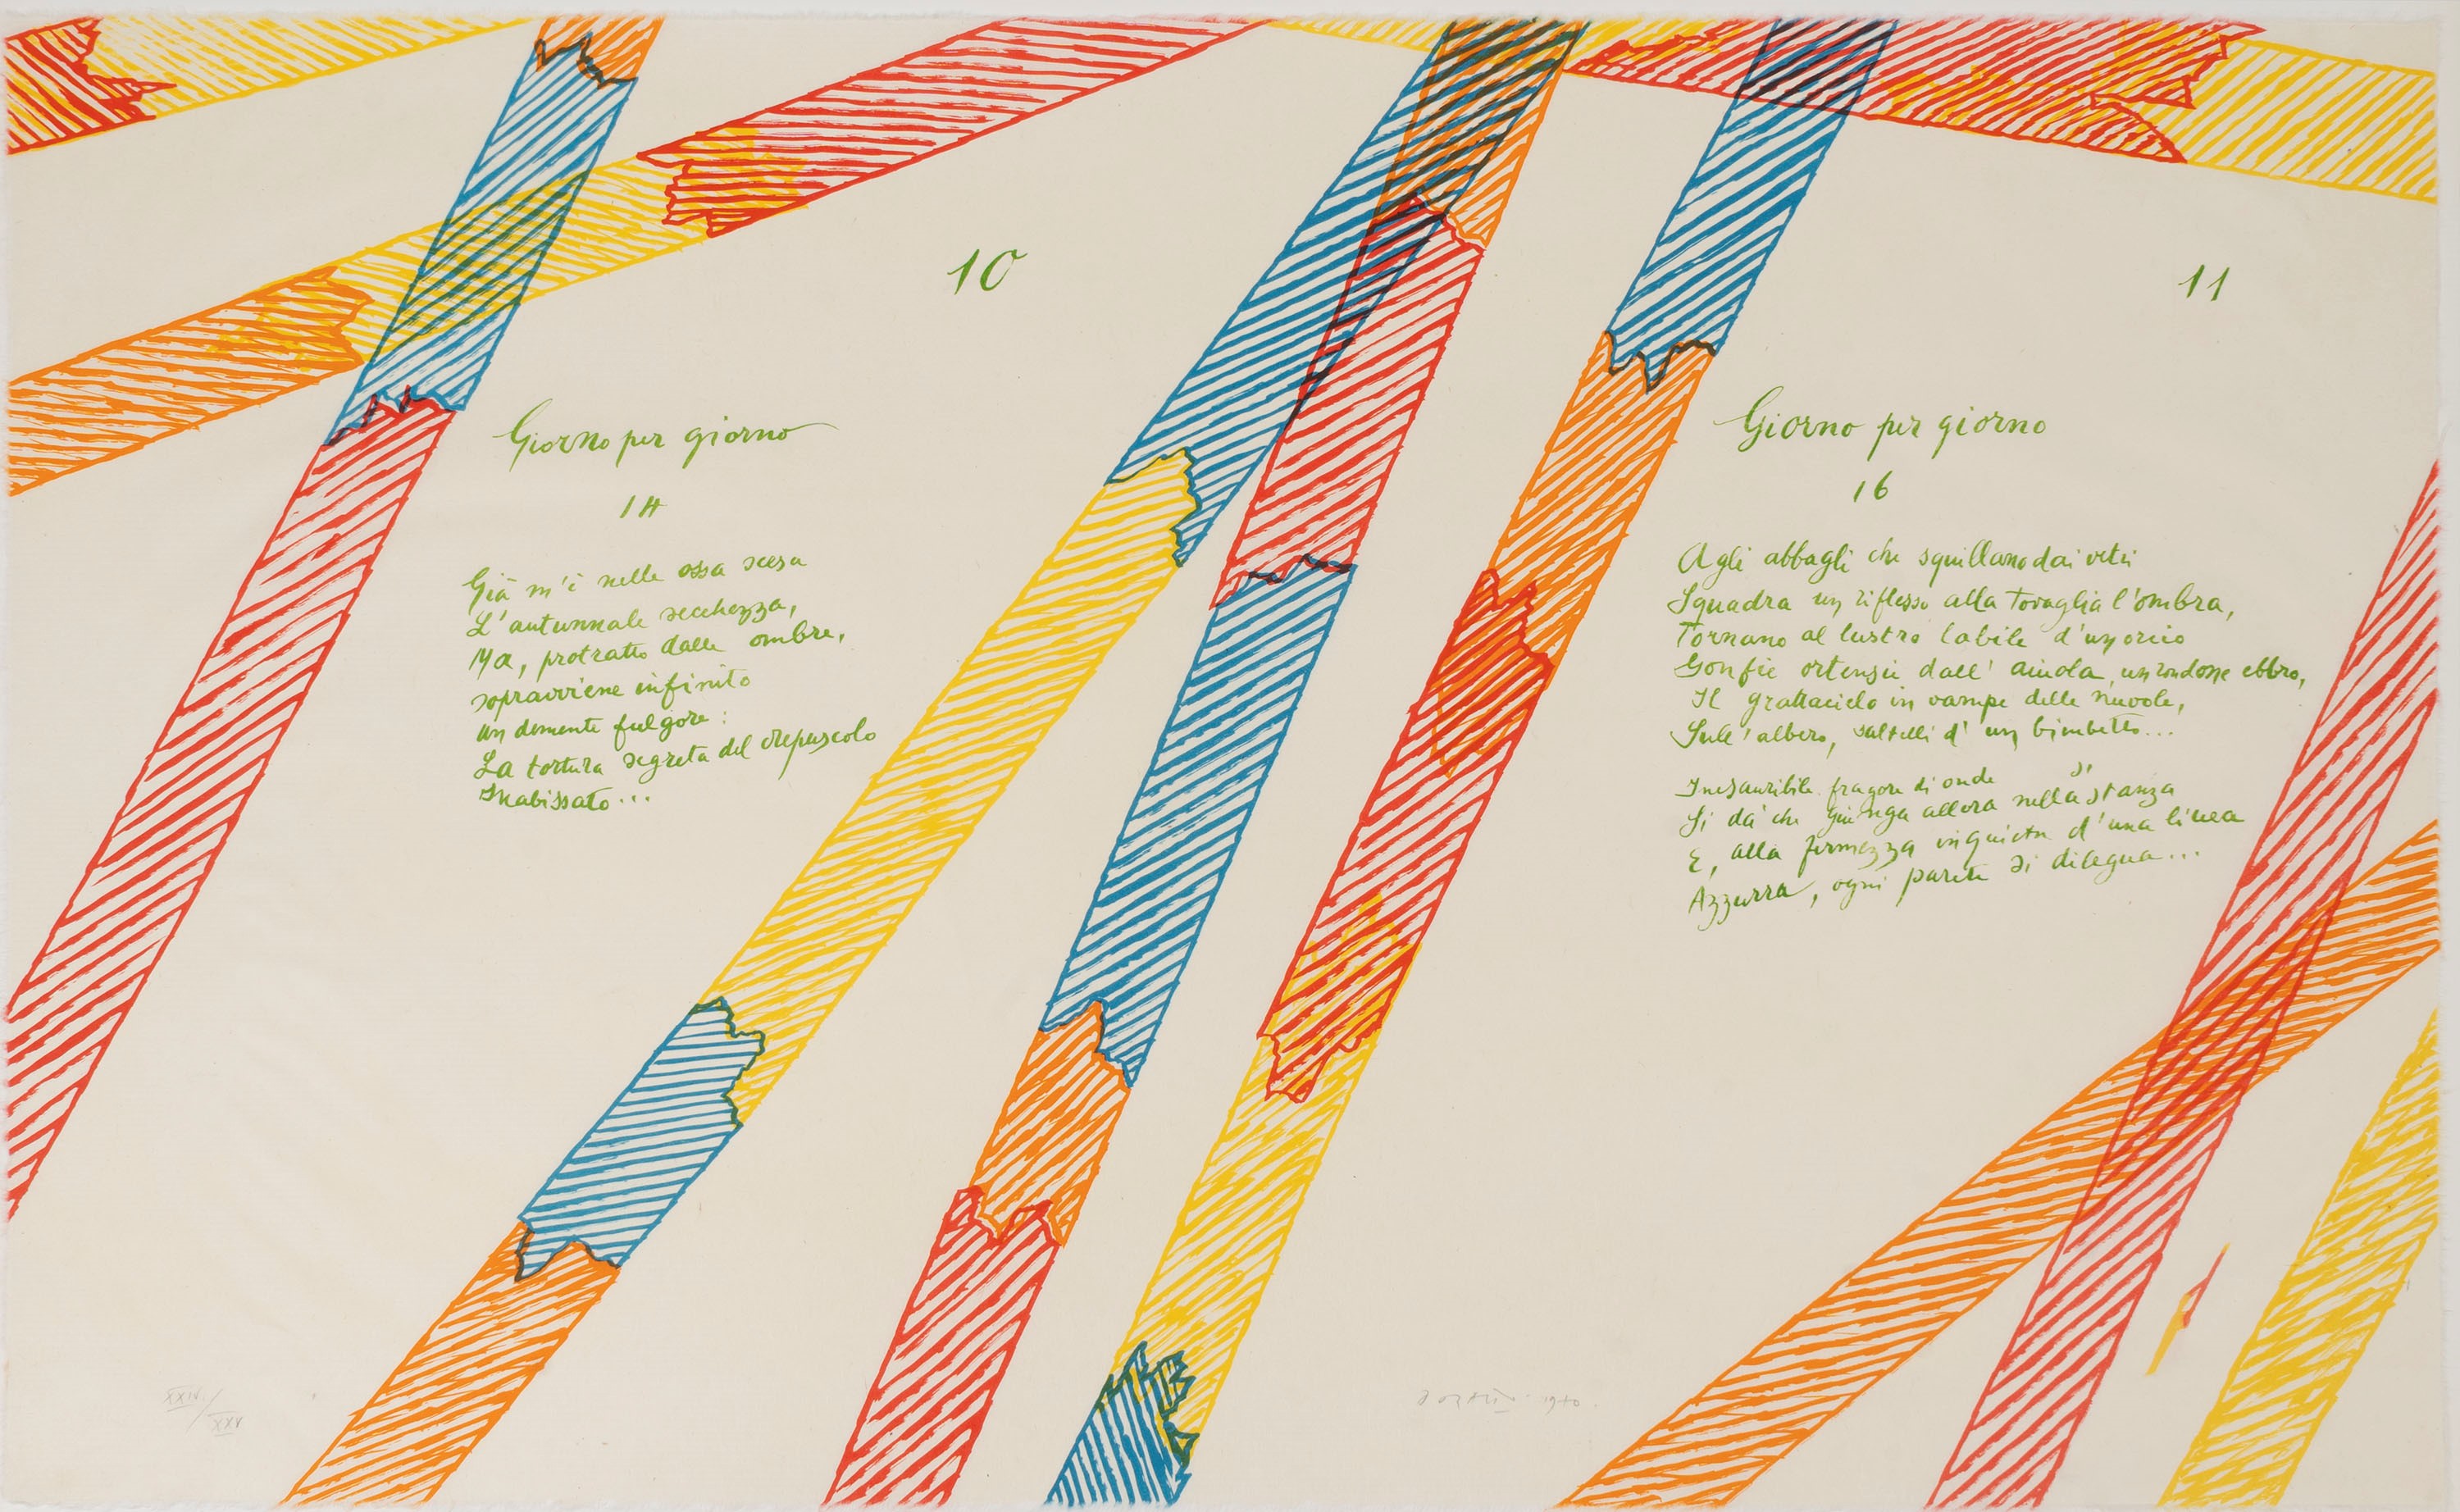 10
11
Giorno per giorno
14
Già m'è nelle ossa scesa
L'autunnale secchezza,
Ma, protratto dalle ombre,
sopravviene infinito
un demente fulgore:
La tortura segreta del crepuscolo
Inabissato...
Giorno per giorno
16
Agli abbagli che squillano dai vetri
Squadra un riflesso alla tovaglia l'ombra,
Tornano al lustro labile d'un orcio
Gonfie ortensie dall'aiuola, un rondone ebbro,
Il grattacielo in vampe delle nuvole,
Sull'albero, saltelli d'un bimbetto...
Inesauribile fragore di onde
Si dà che giunga allora nella stanza
E, alla fermezza inquieta d'una linea
Azzurra, ogni parete si dilegua...
XXIV/XXV